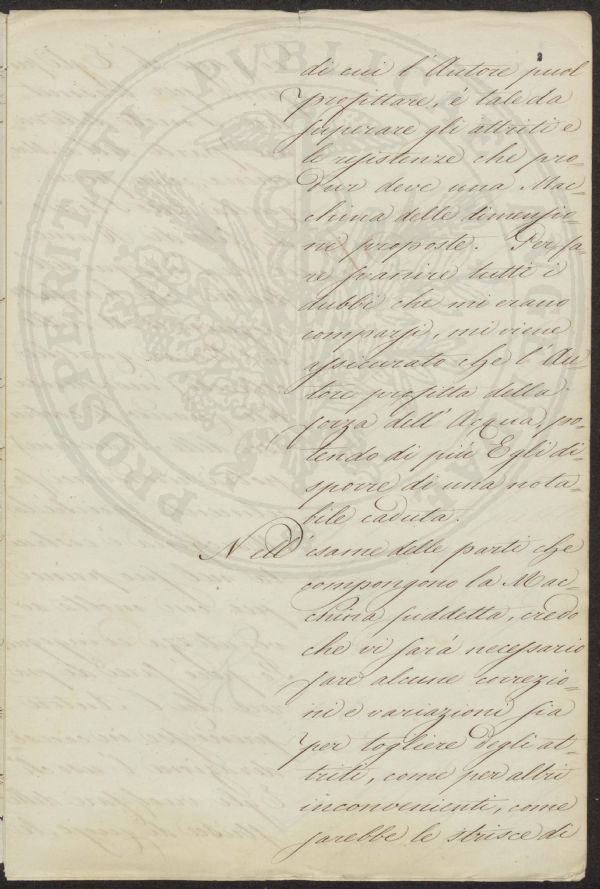 di cui l'Autore puol
profittare, é tale da
superare gli attriti e
le resistenze che pro-
dur deve una Mac-
china delle dimensio-
ni proposte. Per fa-
re svanire tutti i
dubbi che mi erano
comparsi, mi viene
assicurato che l'Au-
tore profitta della
forza dell'Acqua, po-
tendo di piú Egli di-
sporre di una nota-
bile caduta.
Nell'esame delle parti che
compongono la Mac-
china suddetta, credo
che vi sará necessario
fare alcune correzio-
ni e variazioni sia
per togliere degli at-
triti, come per altri
inconvenienti, come
sarebbe le strisce di
PROSPERITATI PUBLICAE